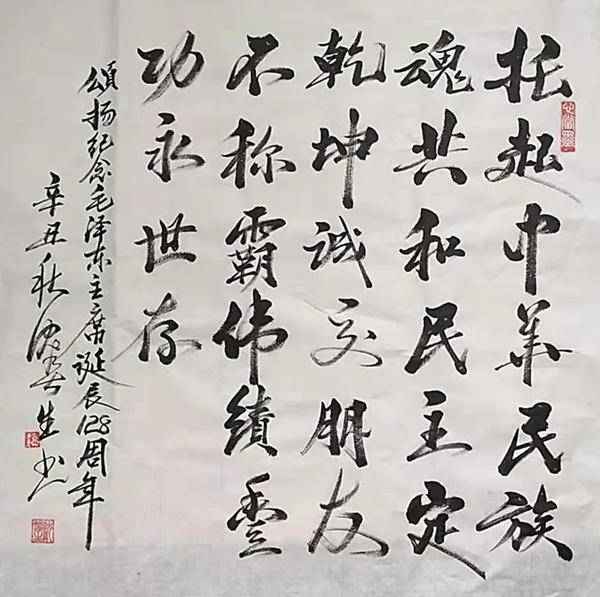 托起中华民族
魂共和民主定
乾坤诚交朋友
不称霸伟绩豐
功永世存
頌扬纪念毛泽东主席诞辰128周年
辛丑秋生书